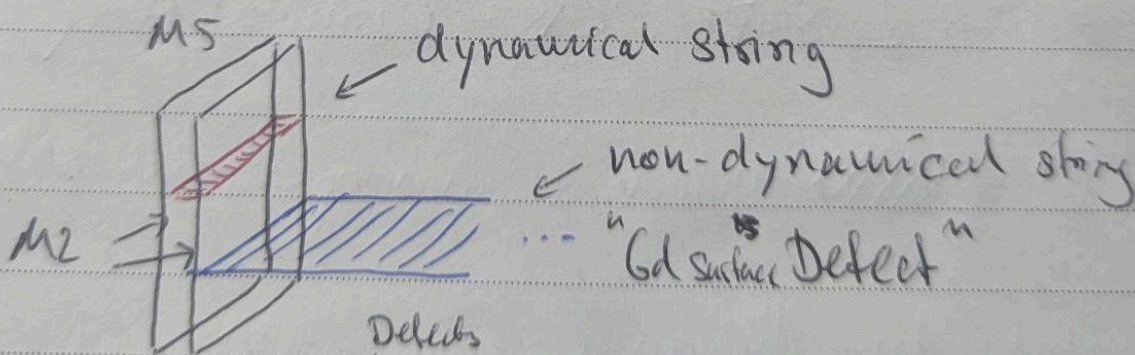 M5
dynamical string
non-dynamical string
M2
... "6d surface Defect"
Defects